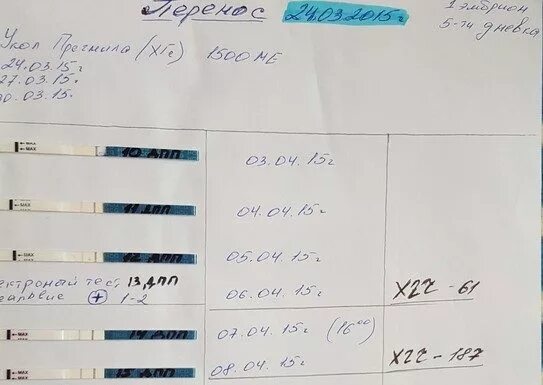 Перенос 24.03.2015г
1 эмбрион
5-ти дневка
Укол Прегнила (ХГч) 1500 МЕ
24.03.15г
27.03.15г
30.03.15г
MAX
MAX
10 ДПП 03.04.15г
MAX
11 ДПП 04.04.15г
MAX
12 ДПП 05.04.15г
ектроный тест 13 ДПП
+ 1-2 06.04.15г ХГЧ - 61
MAX
14 ДПП 07.04.15г (16⁰⁰)
MAX
15 ДПП 08.04.15г ХГЧ - 187